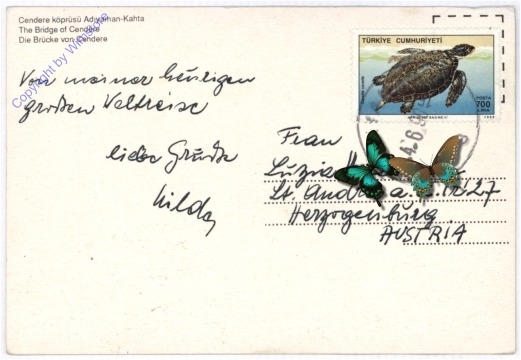 Cendere köprüsü Adıyaman-Kahta
The Bridge of Cendere
Die Brücke von Cendere
Copyright by Wimbose
TÜRKİYE CUMHURİYETİ
POSTA
700
LİRA
Von meiner heurigen
großen Weltreise
liebe Grüße
Hilda
Frau
Luzia
St. Andrä a. 27
Herzogenburg
AUSTRIA